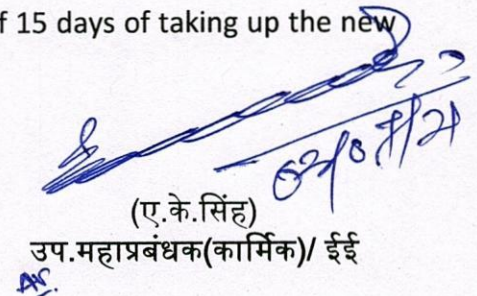 f 15 days of taking up the new
(ए.के.सिंह)
उप.महाप्रबंधक(कार्मिक)/ ईई